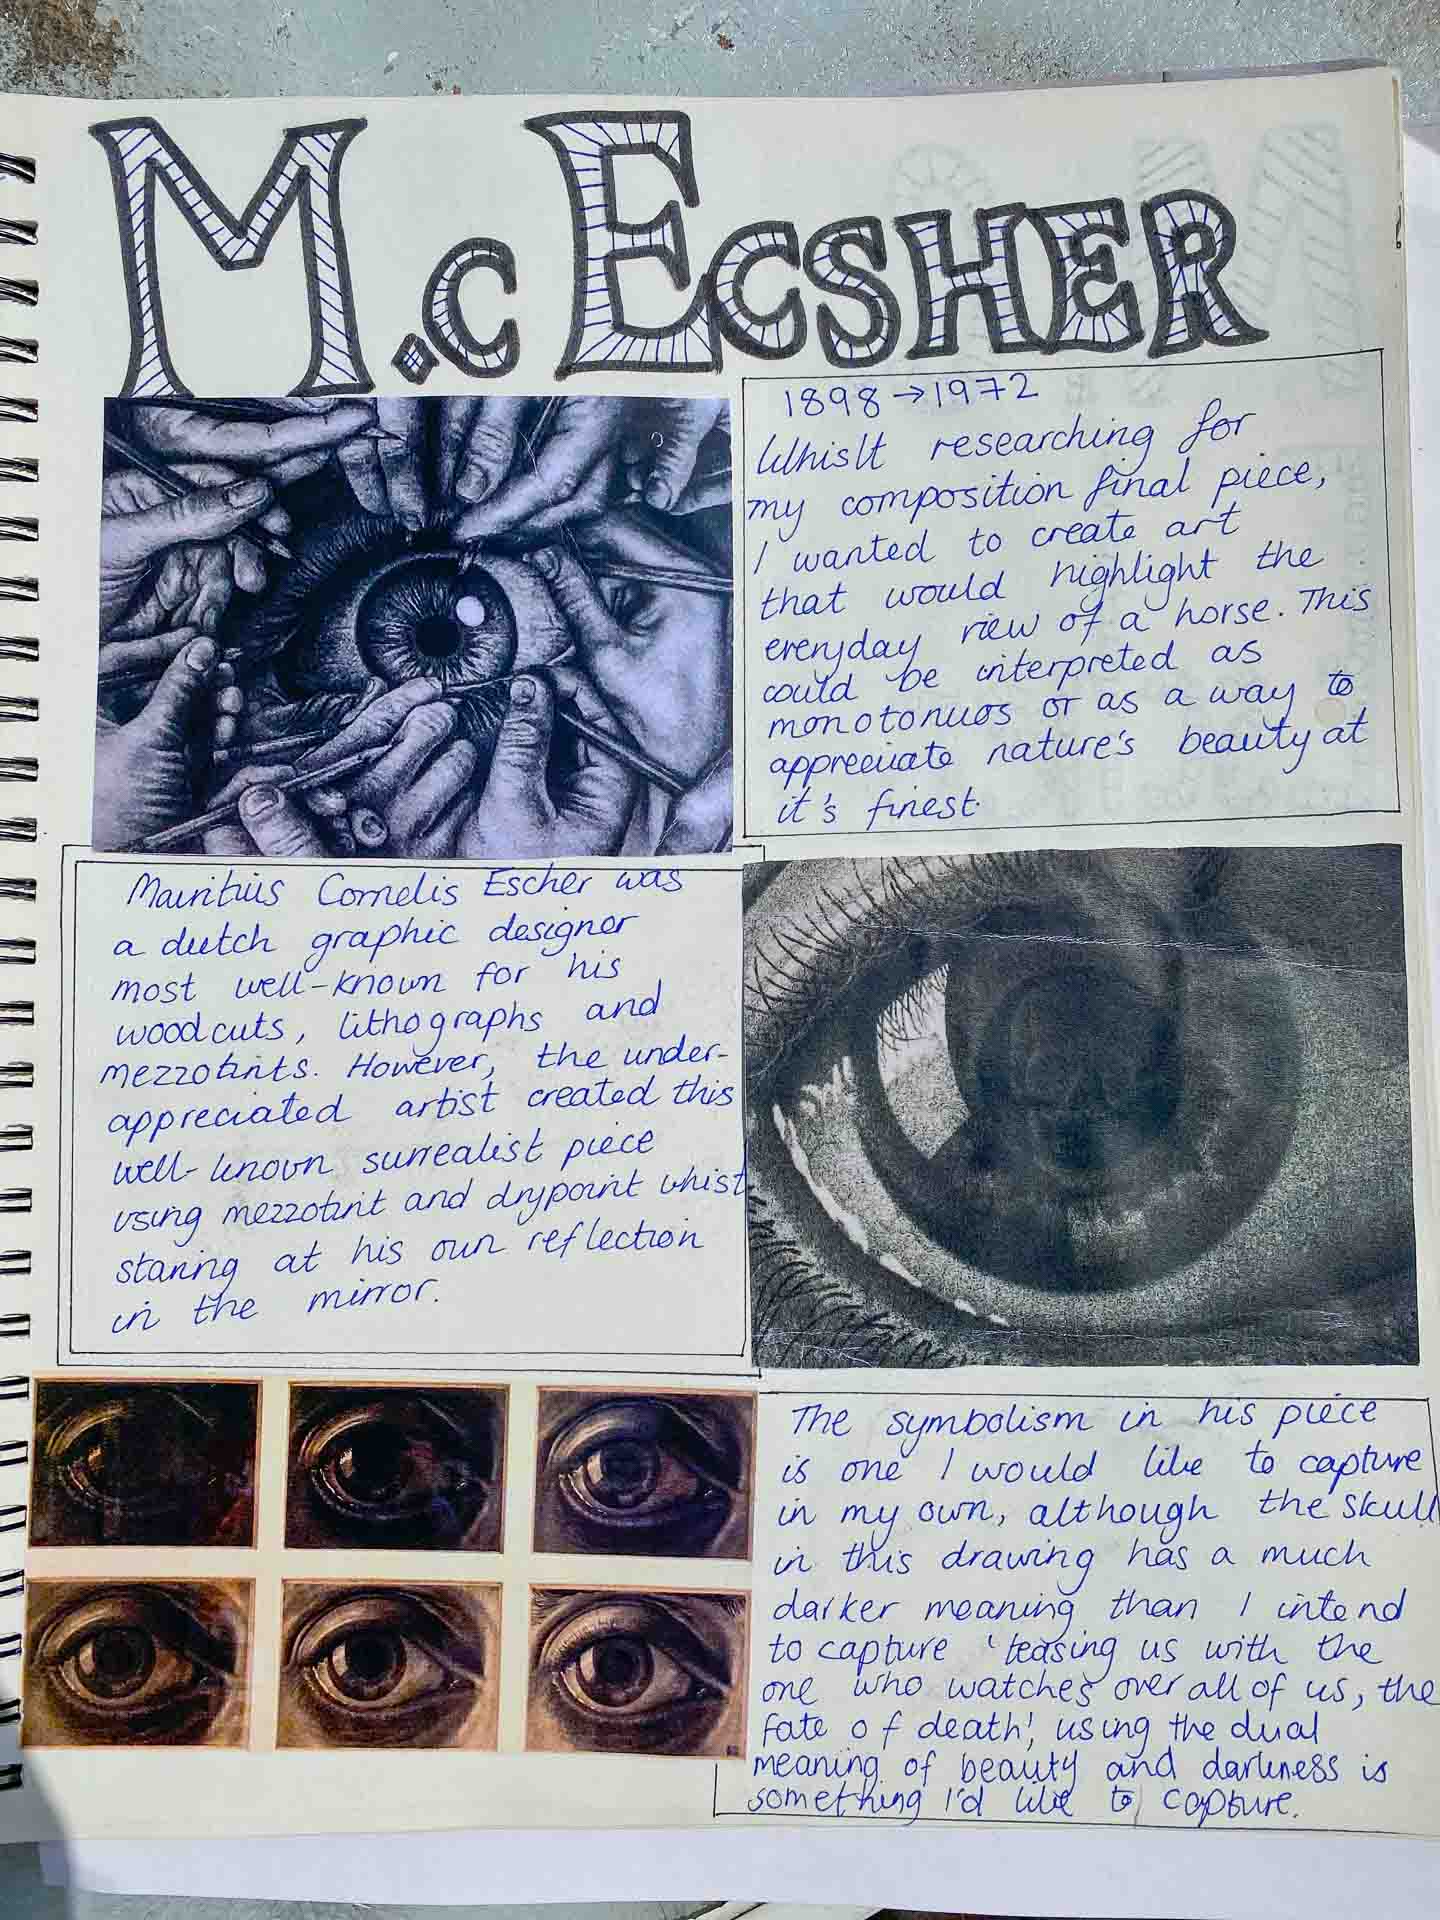 M.C ECSHER
1898→1972
Whislt researching for
my composition final piece,
I wanted to create art
that would highlight the
everyday view of a horse. This
could be interpreted as
monotonuos or as a way to
appreciate nature's beauty at
it's finest.
Mauritius Cornelis Escher was
a dutch graphic designer
most well-known for his
woodcuts, lithographs and
mezzotints. However, the under-
appreciated artist created this
well-known surrealist piece
using mezzotint and drypoint whist
staring at his own reflection
in the mirror.
The symbolism in his piece
is one I would like to capture
in my own, although the skull
in this drawing has a much
darker meaning than I intend
to capture 'teasing us with the
one who watches over all of us, the
fate of death', using the dual
meaning of beauty and darkness is
something I'd like to capture.